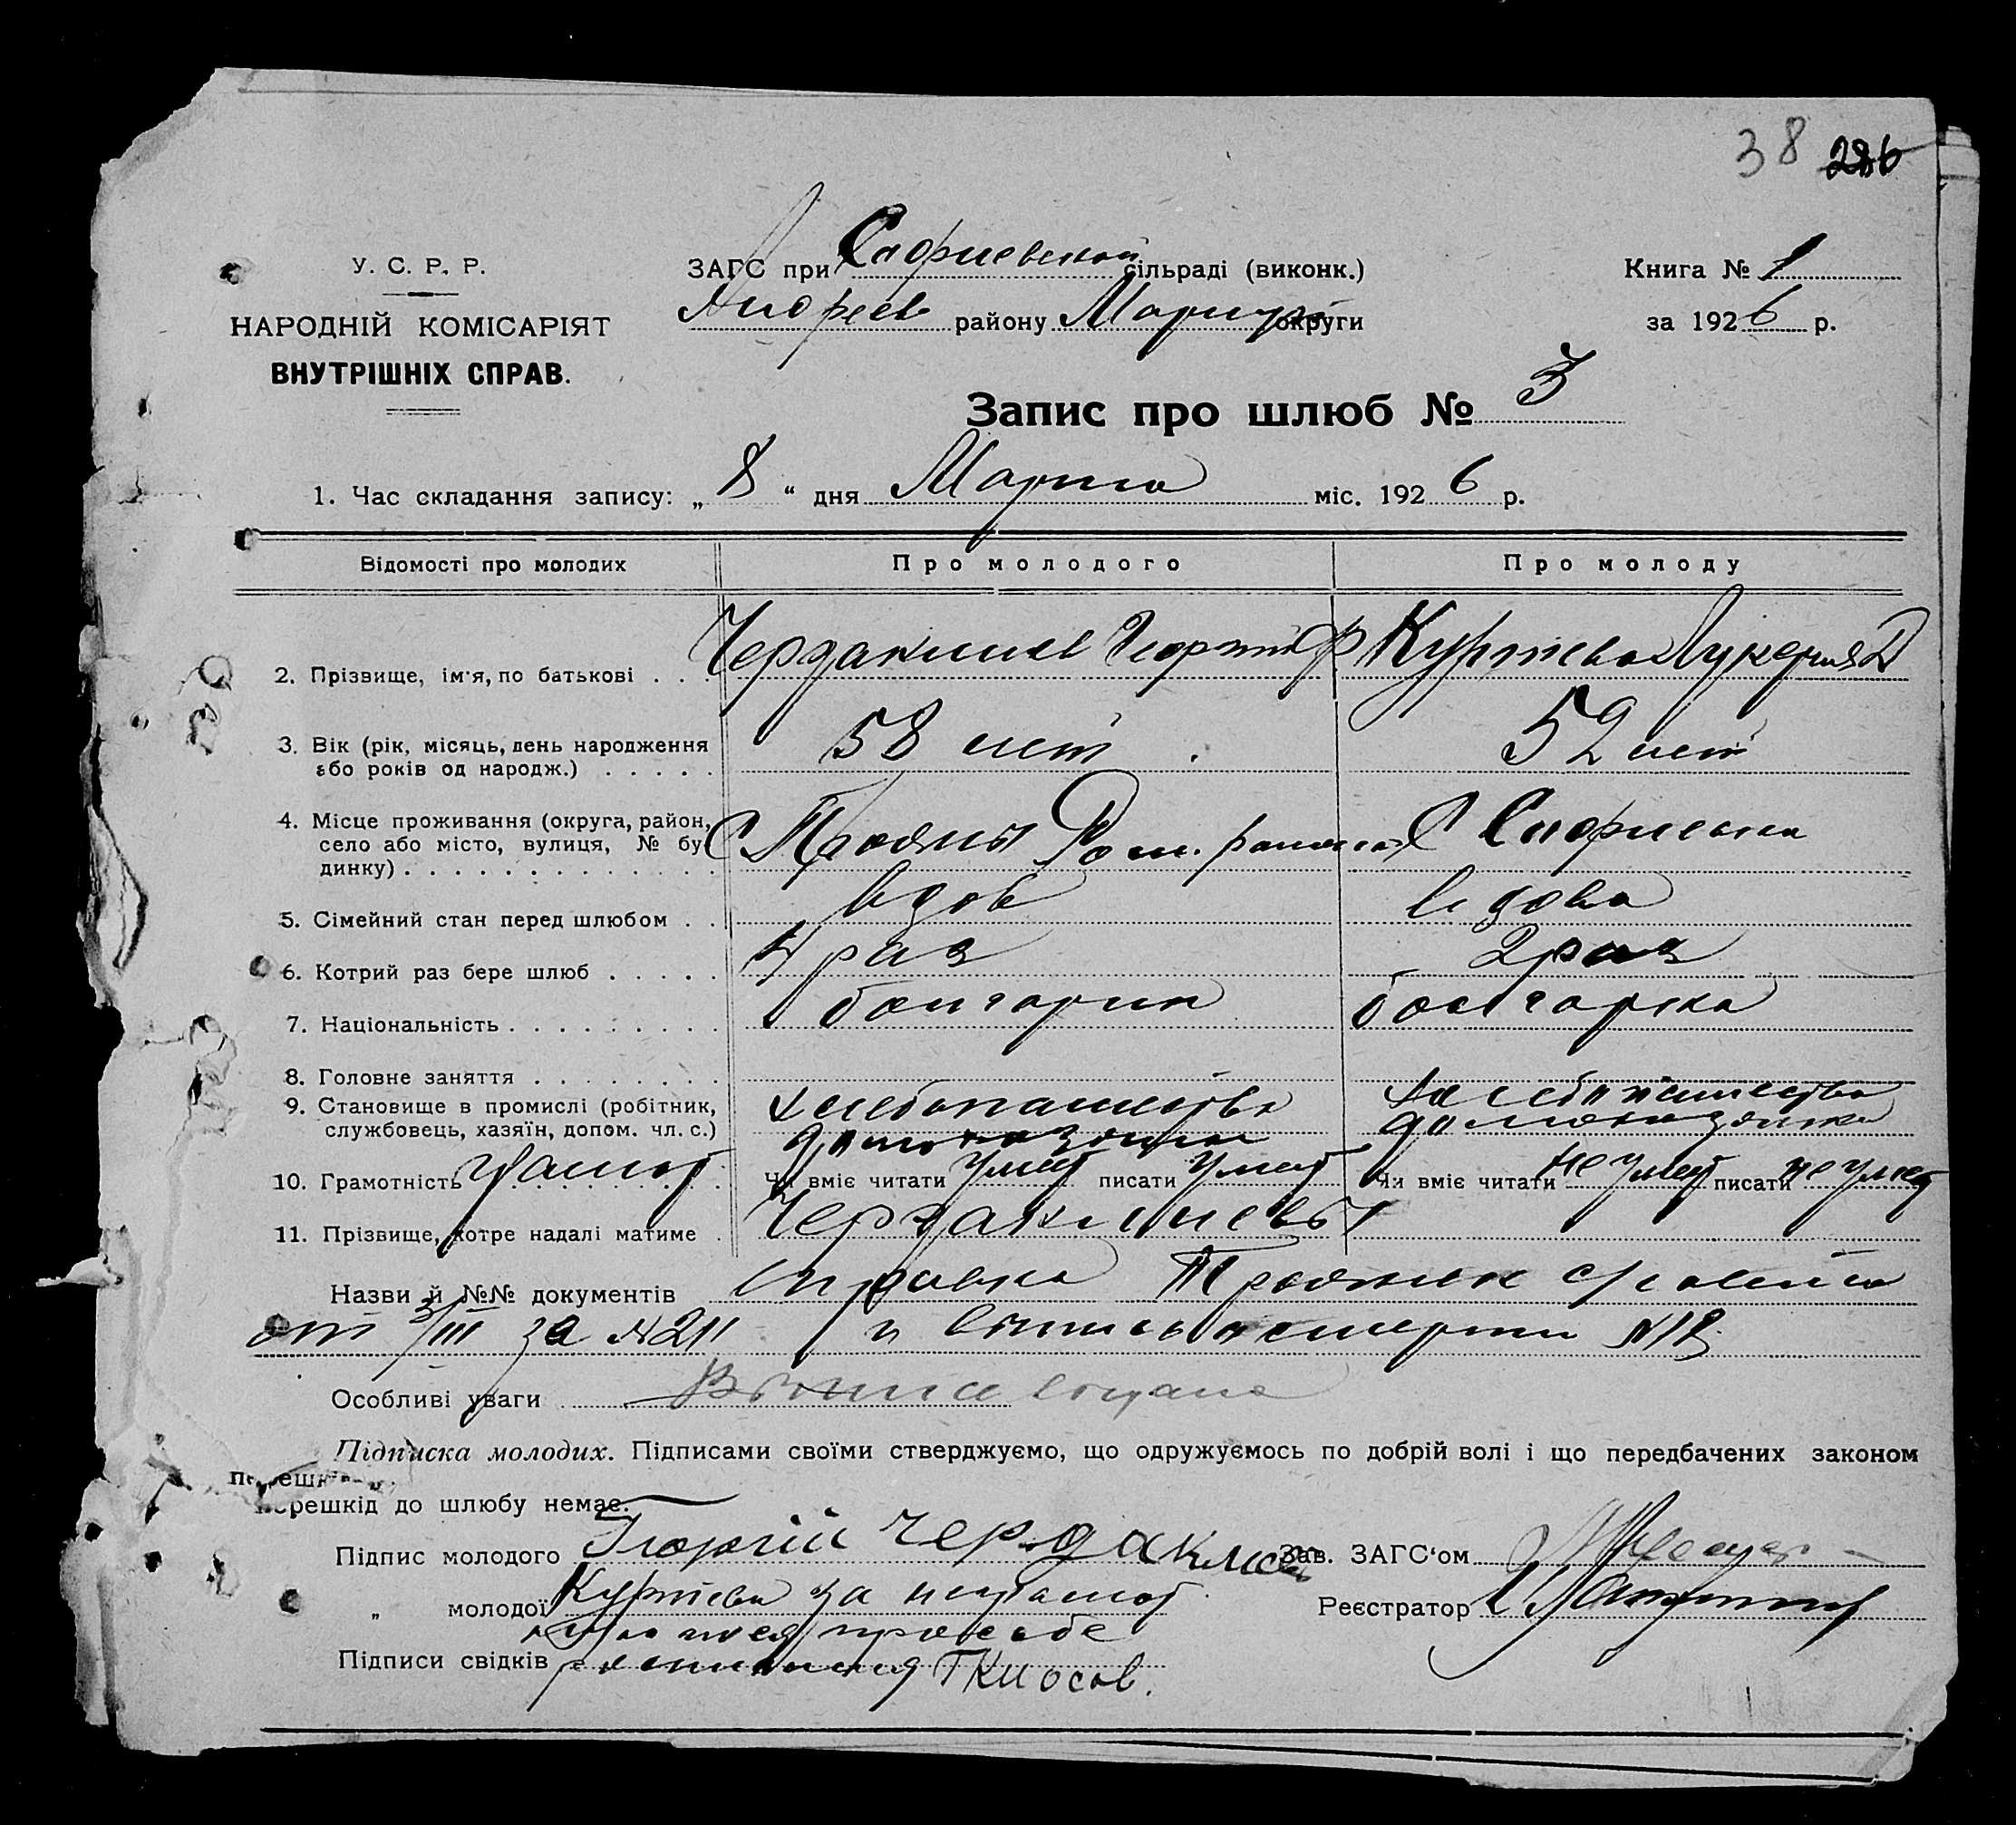 38 286
У. С. Р. Р.
НАРОДНІЙ КОМІСАРІЯТ
ВНУТРІШНІХ СПРАВ.
ЗАГС при Софиевской сільраді (виконк.)
Андреев району Мариуп округи
Книга № 1
за 1926 р.
Запис про шлюб № 3
1. Час складання запису: „ 8 “ дня Марта міс. 1926 р.
Відомості про молодих Про молодого Про молоду
2. Прізвище, ім'я, по батькові . . . Чердаклиев Георгий Ф Куртева Лукерия Д
3. Вік (рік, місяць, день народження
або років од народж.) . . . . . 58 лет 52 лет
4. Місце проживання (округа, район,
село або місто, вулиця, № бу-
динку) . . . . . . . . . . . . . . С Трояны Ром. района С Софиевка
5. Сімейний стан перед шлюбом . . вдов вдова
6. Котрий раз бере шлюб . . . . . 4 раз 2 раз
7. Національність . . . . . . . . . болгарин болгарка
8. Головне заняття . . . . . . . . хлебопашество хлебопашество
9. Становище в промислі (робітник,
службовець, хазяїн, допом. чл. с.) домохозяин домохозяйка
10. Грамотність грамот Чи вміє читати умеет писати умеет Чи вміє читати не умеет писати не умеет
11. Прізвище, котре надалі матиме . Чердаклиевы
Назви й №№ документів справка Троянск с/совета
от 3/III за №211 и выпись о смерти №18
Особливі уваги Выписъ выдана
Підписка молодих. Підписами своїми стверджуємо, що одружуємось по добрій волі і що передбачених законом
перешкід до шлюбу немає.
Підпис молодого Георгій Чердаклиев Зав. ЗАГС'ом
„ молодої Куртева за неграмот Реєстратор
просьбе
Підписи свідків расписался Г Киосов.